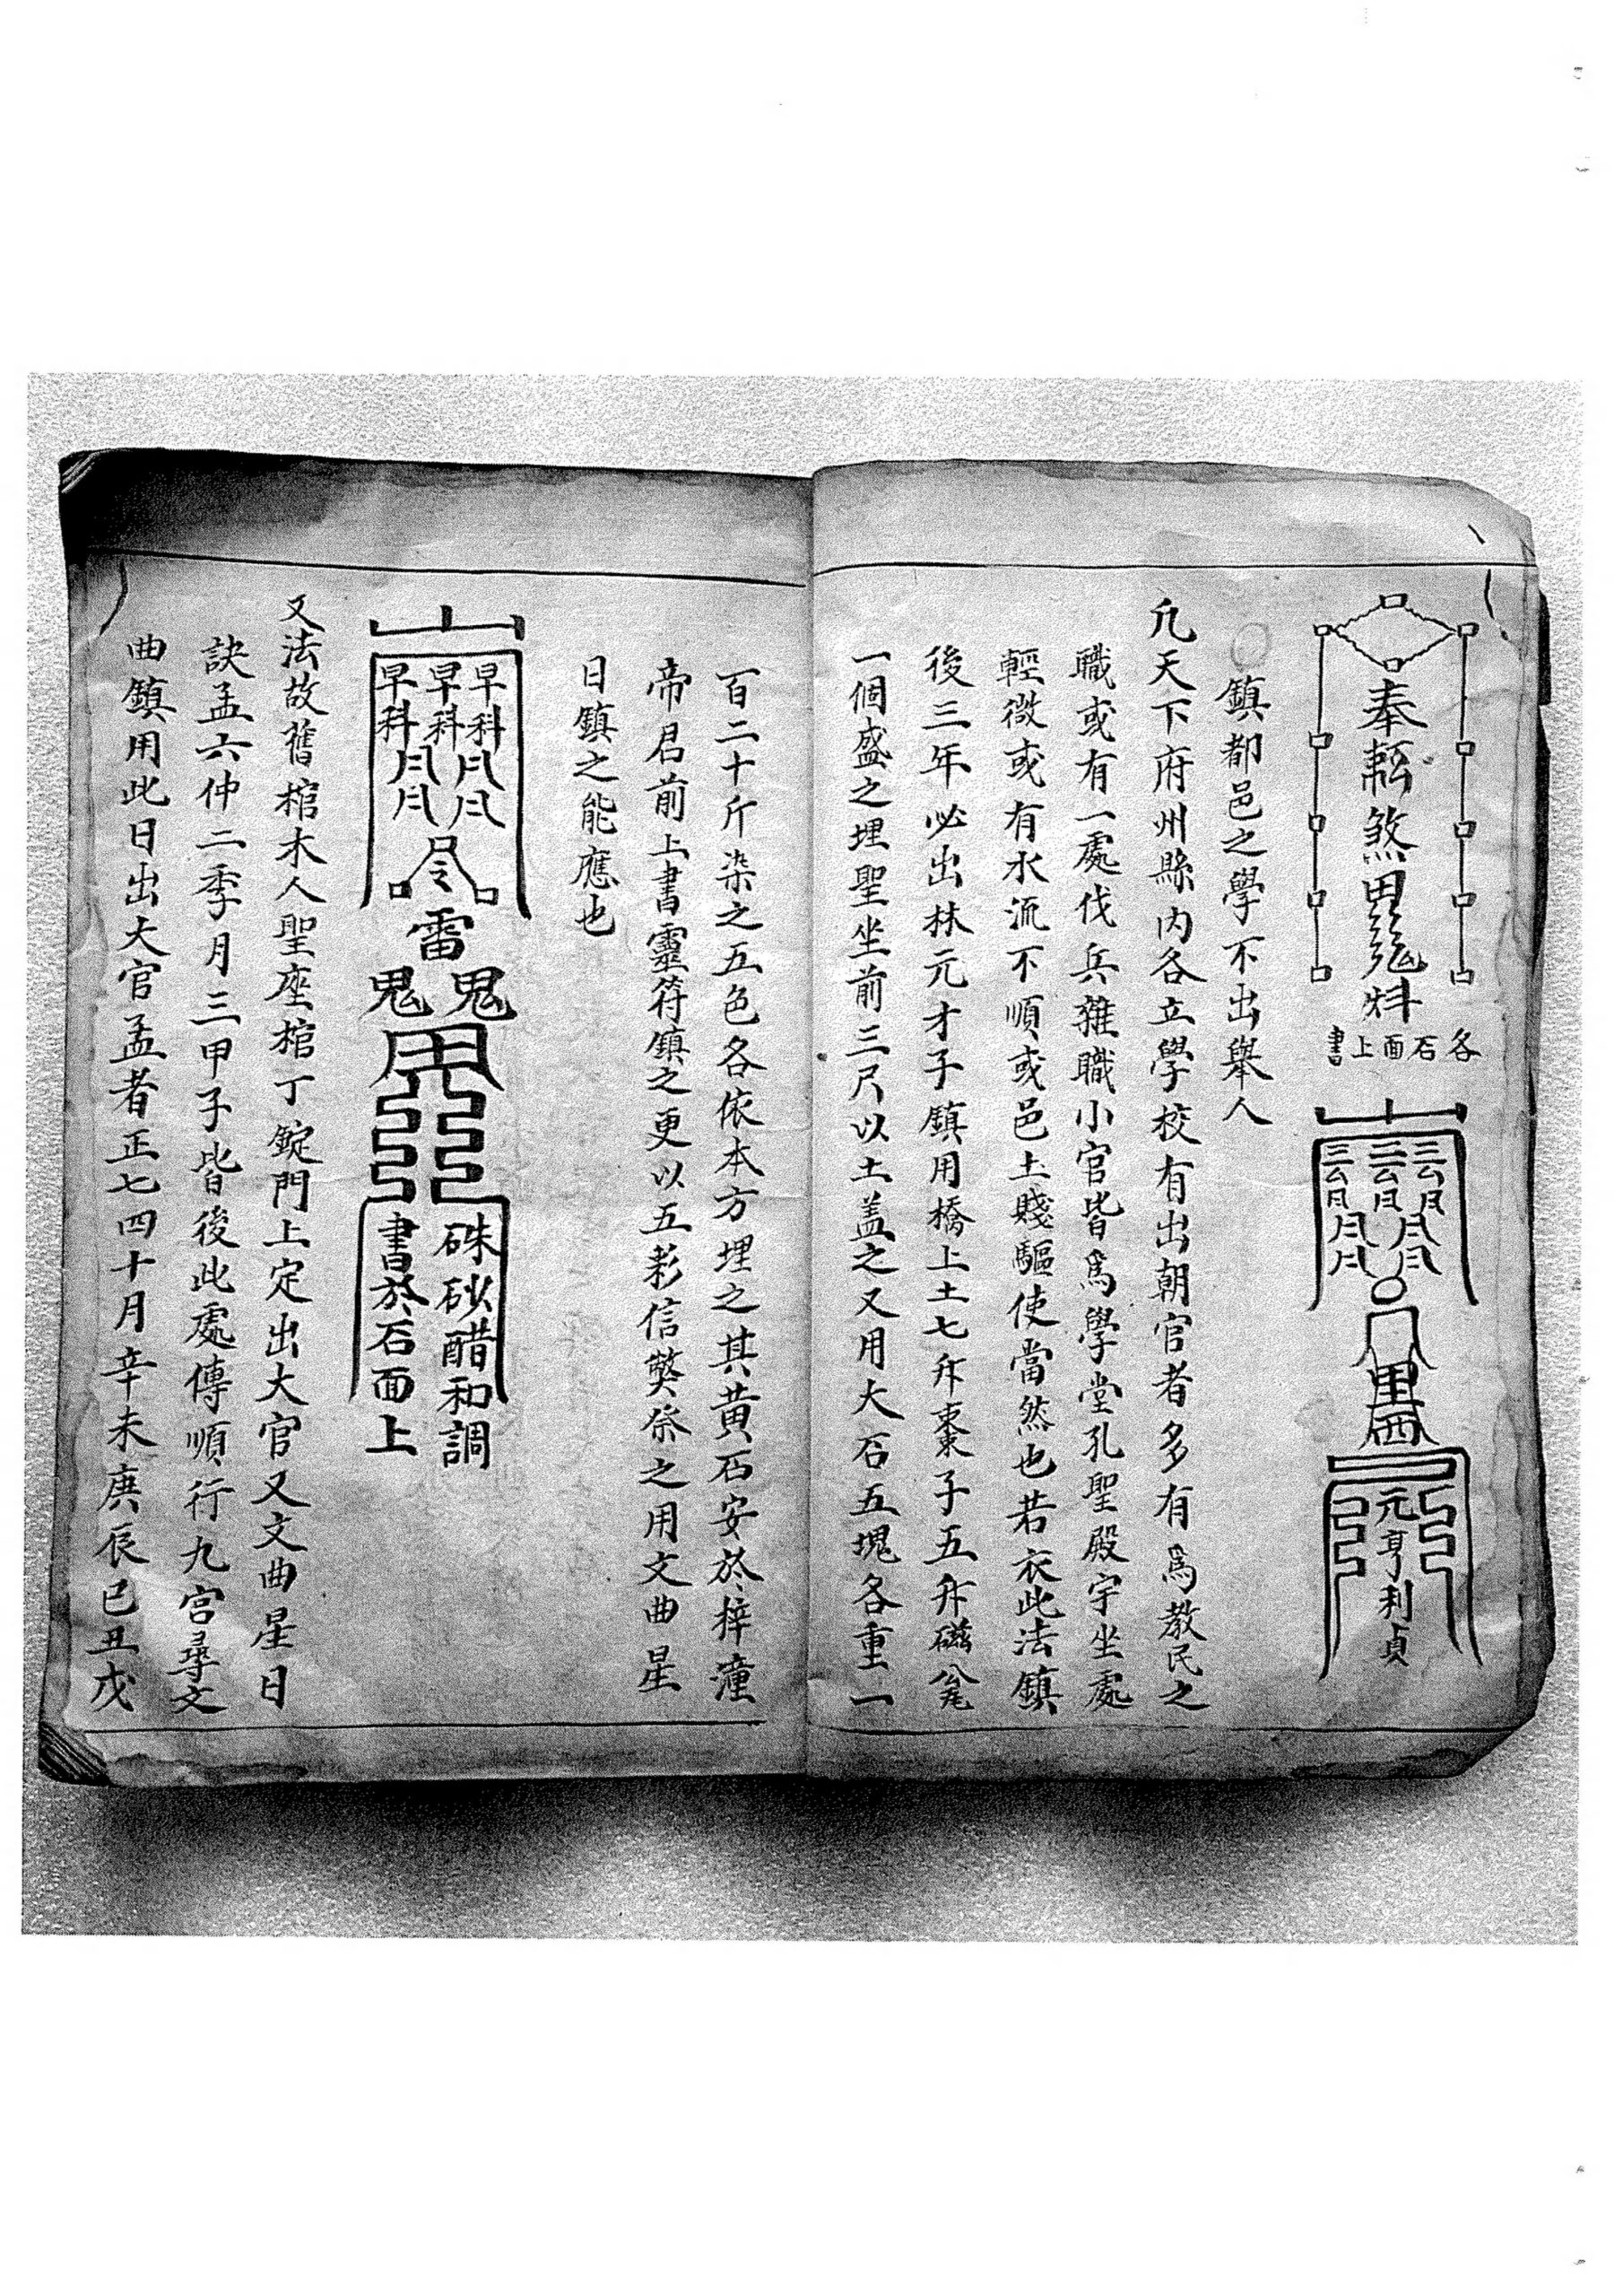 奉 煞 
各石面上書
三台三台三台
元亨利貞
鎮都邑之學不出舉人
凡天下府州縣內各立學校有出朝官者多有爲教民之
職或有一處伐兵雜職小官皆爲學堂孔聖殿宇坐處
輕微或有水流不順或邑土賤驅使當然也若衣此法鎮
後三年必出林元才子鎮用橋上土七斗棗子五斗磁瓮
一個盛之埋聖坐前三尺以土盖之又用大石五塊各重一
百二十斤染之五色各依本方埋之其黄石安於梓潼
帝君前上書靈符鎮之更以五彩信獘祭之用文曲星
日鎮之能應也
早早早
科科科
令
雷
鬼鬼
硃砂醋和調
書於石面上
又法故舊棺木人聖座棺丁錠門上定出大官又文曲星日
訣孟六仲二季月三甲子皆後此處傳順行九宮尋文
曲鎮用此日出大官孟者正七四十月辛未庚辰巳丑戊